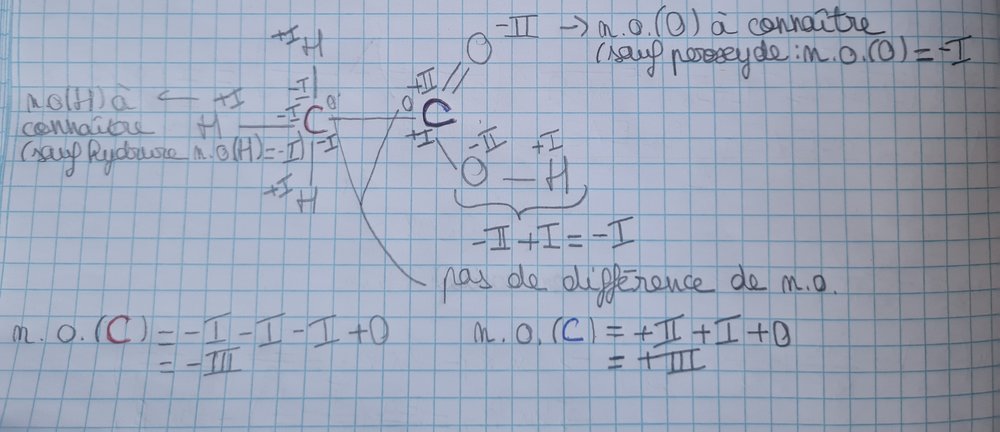 -II → n.o.(O) à connaître
(sauf peroxyde : n.o.(O) = -I
+I H O
-I +II
n.o(H) à ← +I -I C 0 0 C
connaître H -I +I -II +I
(sauf hydrure n.O(H)=-I) O — H
+I H
-II + I = -I
pas de différence de n.o.
n.o.(C) = -I -I -I +0
= -III
n.o.(C) = +II +I +0
= +III